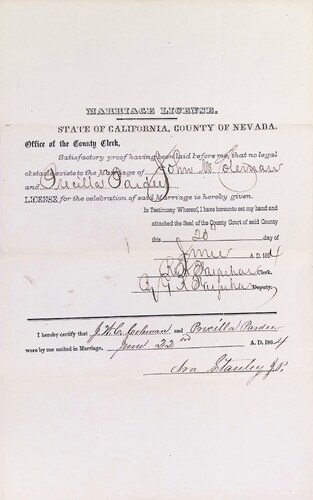 MARRIAGE LICENSE.
STATE OF CALIFORNIA, COUNTY OF NEVADA.
Office of the County Clerk,
Satisfactory proof having been laid before me, that no legal
obstacle exists to the Marriage of John W Coleman
and Priscilla Pardee
LICENSE for the celebration of said Marriage is hereby given.
In Testimony Whereof, I have hereunto set my hand and
attached the Seal of the County Court of said County
this 20 day of
June A. D. 1864
R. H. Clerk.
By Deputy.
I hereby certify that J. W. Coleman and Priscilla Pardee
were by me united in Marriage, June 22nd A. D. 1864
Ira Stanley J.P.